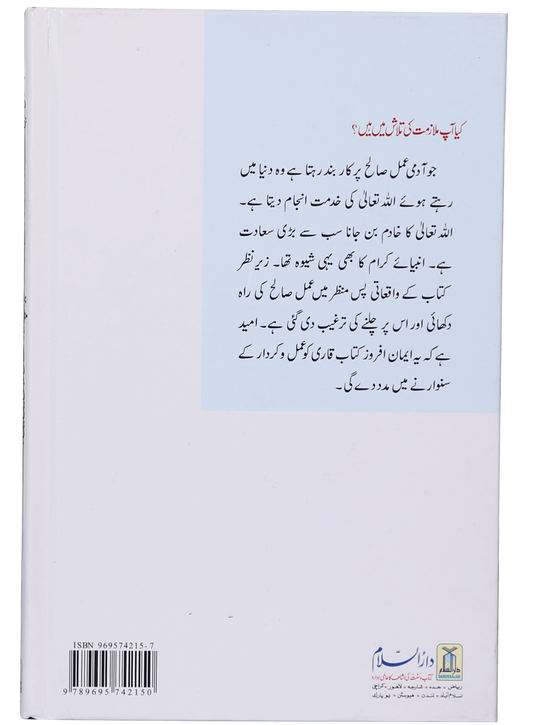 کیا آپ ملازمت کی تلاش میں ہیں؟
جو آدمی عمل صالح پر کاربند رہتا ہے وہ دنیا میں
رہتے ہوئے اللہ تعالیٰ کی خدمت انجام دیتا ہے۔
اللہ تعالیٰ کا خادم بن جانا سب سے بڑی سعادت
ہے۔ انبیائے کرام کا بھی یہی شیوہ تھا۔ زیرِ نظر
کتاب کے واقعاتی پس منظر میں عمل صالح کی راہ
دکھائی اور اس پر چلنے کی ترغیب دی گئی ہے۔ امید
ہے کہ یہ ایمان افروز کتاب قاری کو عمل و کردار کے
سنوارنے میں مدد دے گی۔
ISBN 969574215-7
9 789695 742150
دارالسلام
کتاب و سنت کی اشاعت کا عالمی ادارہ
ریاض • جدہ • شارجہ • لاہور • کراچی
اسلام آباد • لندن • ہیوسٹن • نیو یارک
دارالسلام
DARUSSALAM